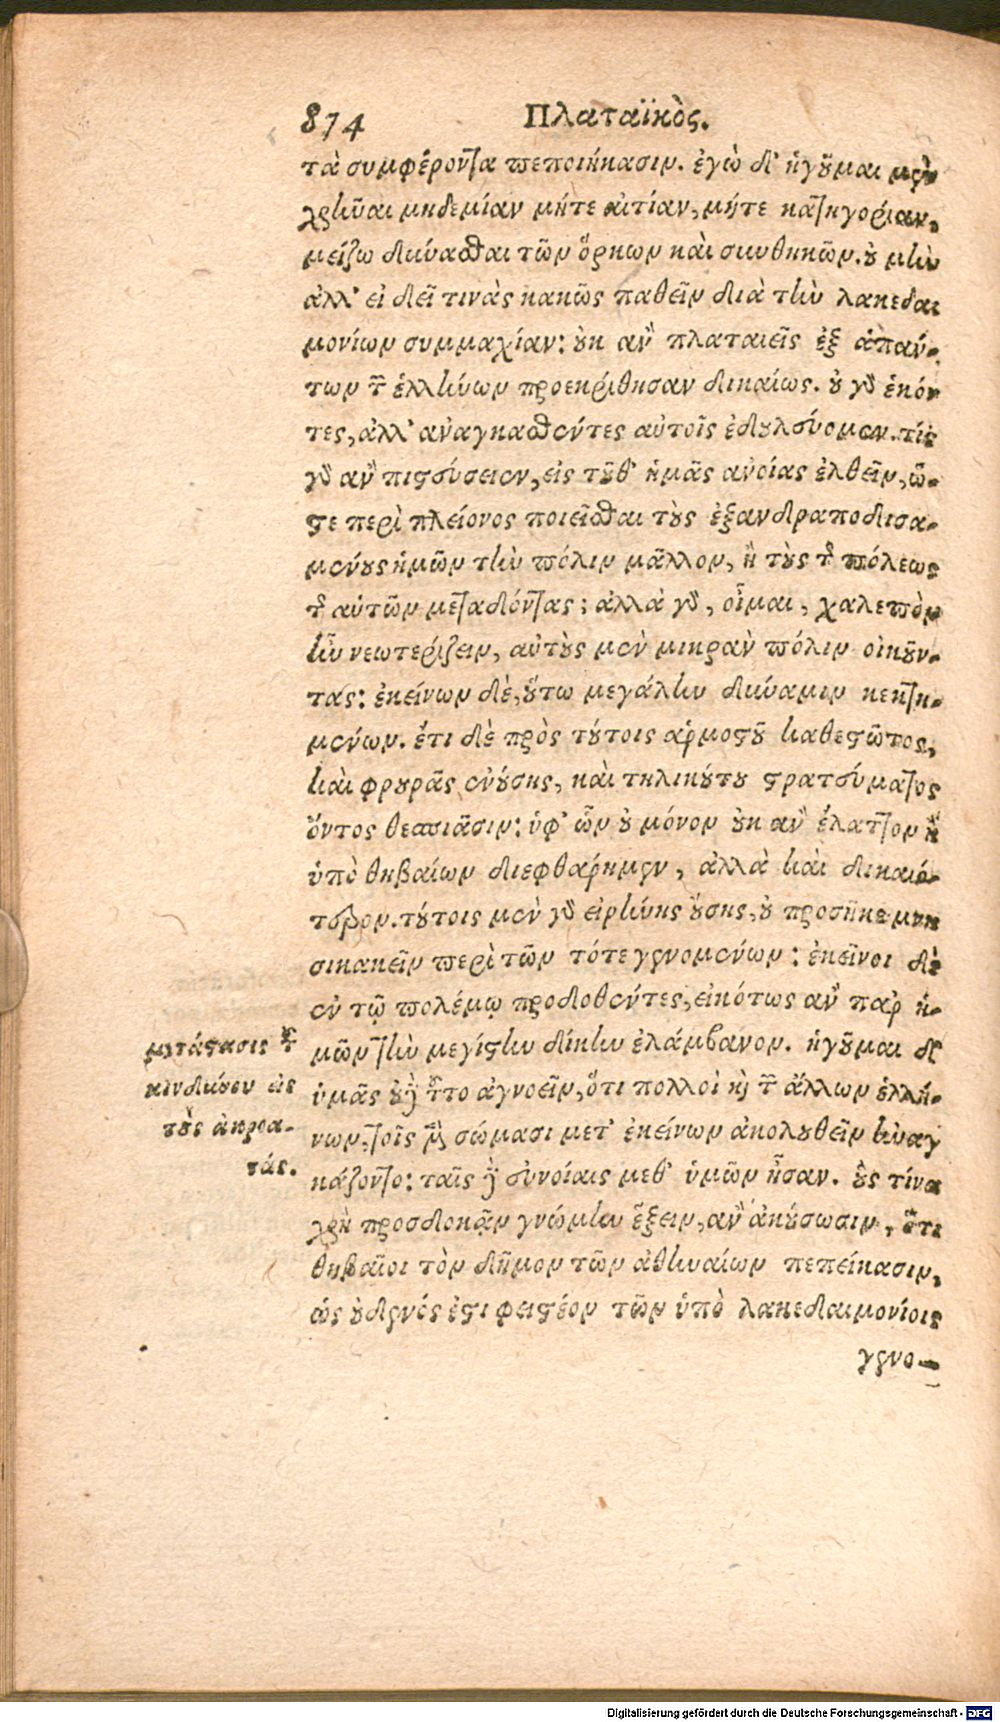 874 Πλαταϊκὸς.
τὰ συμφέροντα πεποιήκασιν. ἐγὼ δ' ἡγοῦμαι μὲν
χρῆναι μηδεμίαν μήτε αἰτίαν, μήτε κατηγορίαν,
μείζω δύνασθαι τῶν ὅρκων καὶ συνθηκῶν. οὐ μὴν
ἀλλ' εἰ δεῖ τινὰς κακῶς παθεῖν διὰ τὴν λακεδαι
μονίων συμμαχίαν: οὐκ ἂν πλαταιεῖς ἐξ ἁπάν-
των τῶν ἑλλήνων προεκρίθησαν δικαίως. οὐ γὰρ ἑκόν
τες, ἀλλ' ἀναγκασθέντες αὐτοῖς ἐδουλεύομεν. τίς
γὰρ ἂν πιστεύσειεν, εἰς τοῦθ' ἡμᾶς ἀνοίας ἐλθεῖν, ὥ-
στε περὶ πλείονος ποιεῖσθαι τοὺς ἐξανδραποδισα-
μένους ἡμῶν τὴν πόλιν μᾶλλον, ἢ τοὺς τῆς πόλεως
τῆς αὑτῶν μεταδόντας; ἀλλὰ γὰρ, οἶμαι, χαλεπὸν
ἦν νεωτερίζειν, αὐτοὺς μὲν μικρὰν πόλιν οἰκοῦν-
τας: ἐκείνων δὲ, οὕτω μεγάλην δύναμιν κεκτη-
μένων. ἔτι δὲ πρὸς τούτοις ἁρμοστοῦ καθεστῶτος,
καὶ φρουρᾶς ἐνούσης, καὶ τηλικούτου στρατεύματος
ὄντος θεσπιᾶσιν: ὑφ' ὧν οὐ μόνον οὐκ ἂν ἔλαττον ἢ
ὑπὸ θηβαίων διεφθάρημεν, ἀλλὰ καὶ δικαιό-
τερον. τούτοις μὲν γὰρ εἰρήνης οὔσης, οὐ προσῆκε μνη
σικακεῖν περὶ τῶν τότε γενομένων: ἐκεῖνοι δὲ
ἐν τῷ πολέμῳ προδοθέντες, εἰκότως ἂν παρ' ἡ-
μῶν τὴν μεγίστην δίκην ἐλάμβανον. ἡγοῦμαι δ'
ὑμᾶς οὐδὲ τοῦτο ἀγνοεῖν, ὅτι πολλοὶ καὶ τῶν ἄλλων ἑλλή-
νων, τοῖς μὲν σώμασι μετ' ἐκείνων ἀκολουθεῖν ἠναγ
κάζοντο: ταῖς δὲ εὐνοίαις μεθ' ὑμῶν ἦσαν. οὓς τίνα
χρὴ προσδοκᾷν γνώμην ἕξειν, ἂν ἀκούσωσιν, ὅτι
θηβαῖοι τὸν δῆμον τῶν ἀθηναίων πεπείκασιν,
ὡς οὐδενός ἐστι φειστέον τῶν ὑπὸ λακεδαιμονίοις
γενο-
μετάστασις τοῦ
κινδύνου εἰς
τοὺς ἀκροα-
τάς.
Digitalisierung gefördert durch die Deutsche Forschungsgemeinschaft - DFG